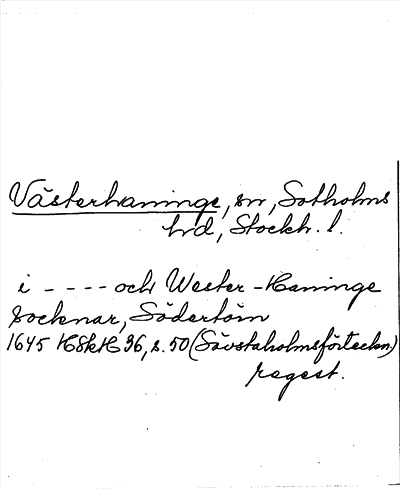 Västerhaninge, sn, Sotholms
hd, Stockh. l.
i - - - - och Wester-Haninge
socknar, Södertörn
1645 HSkH 36, s. 50 (Sävstaholmsförteckn.)
regest.